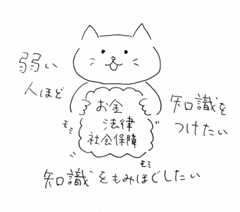 弱い
人ほど
お金
法律
社会保障
知識を
つけたい
モミ
モミ
知識をもみほぐしたい